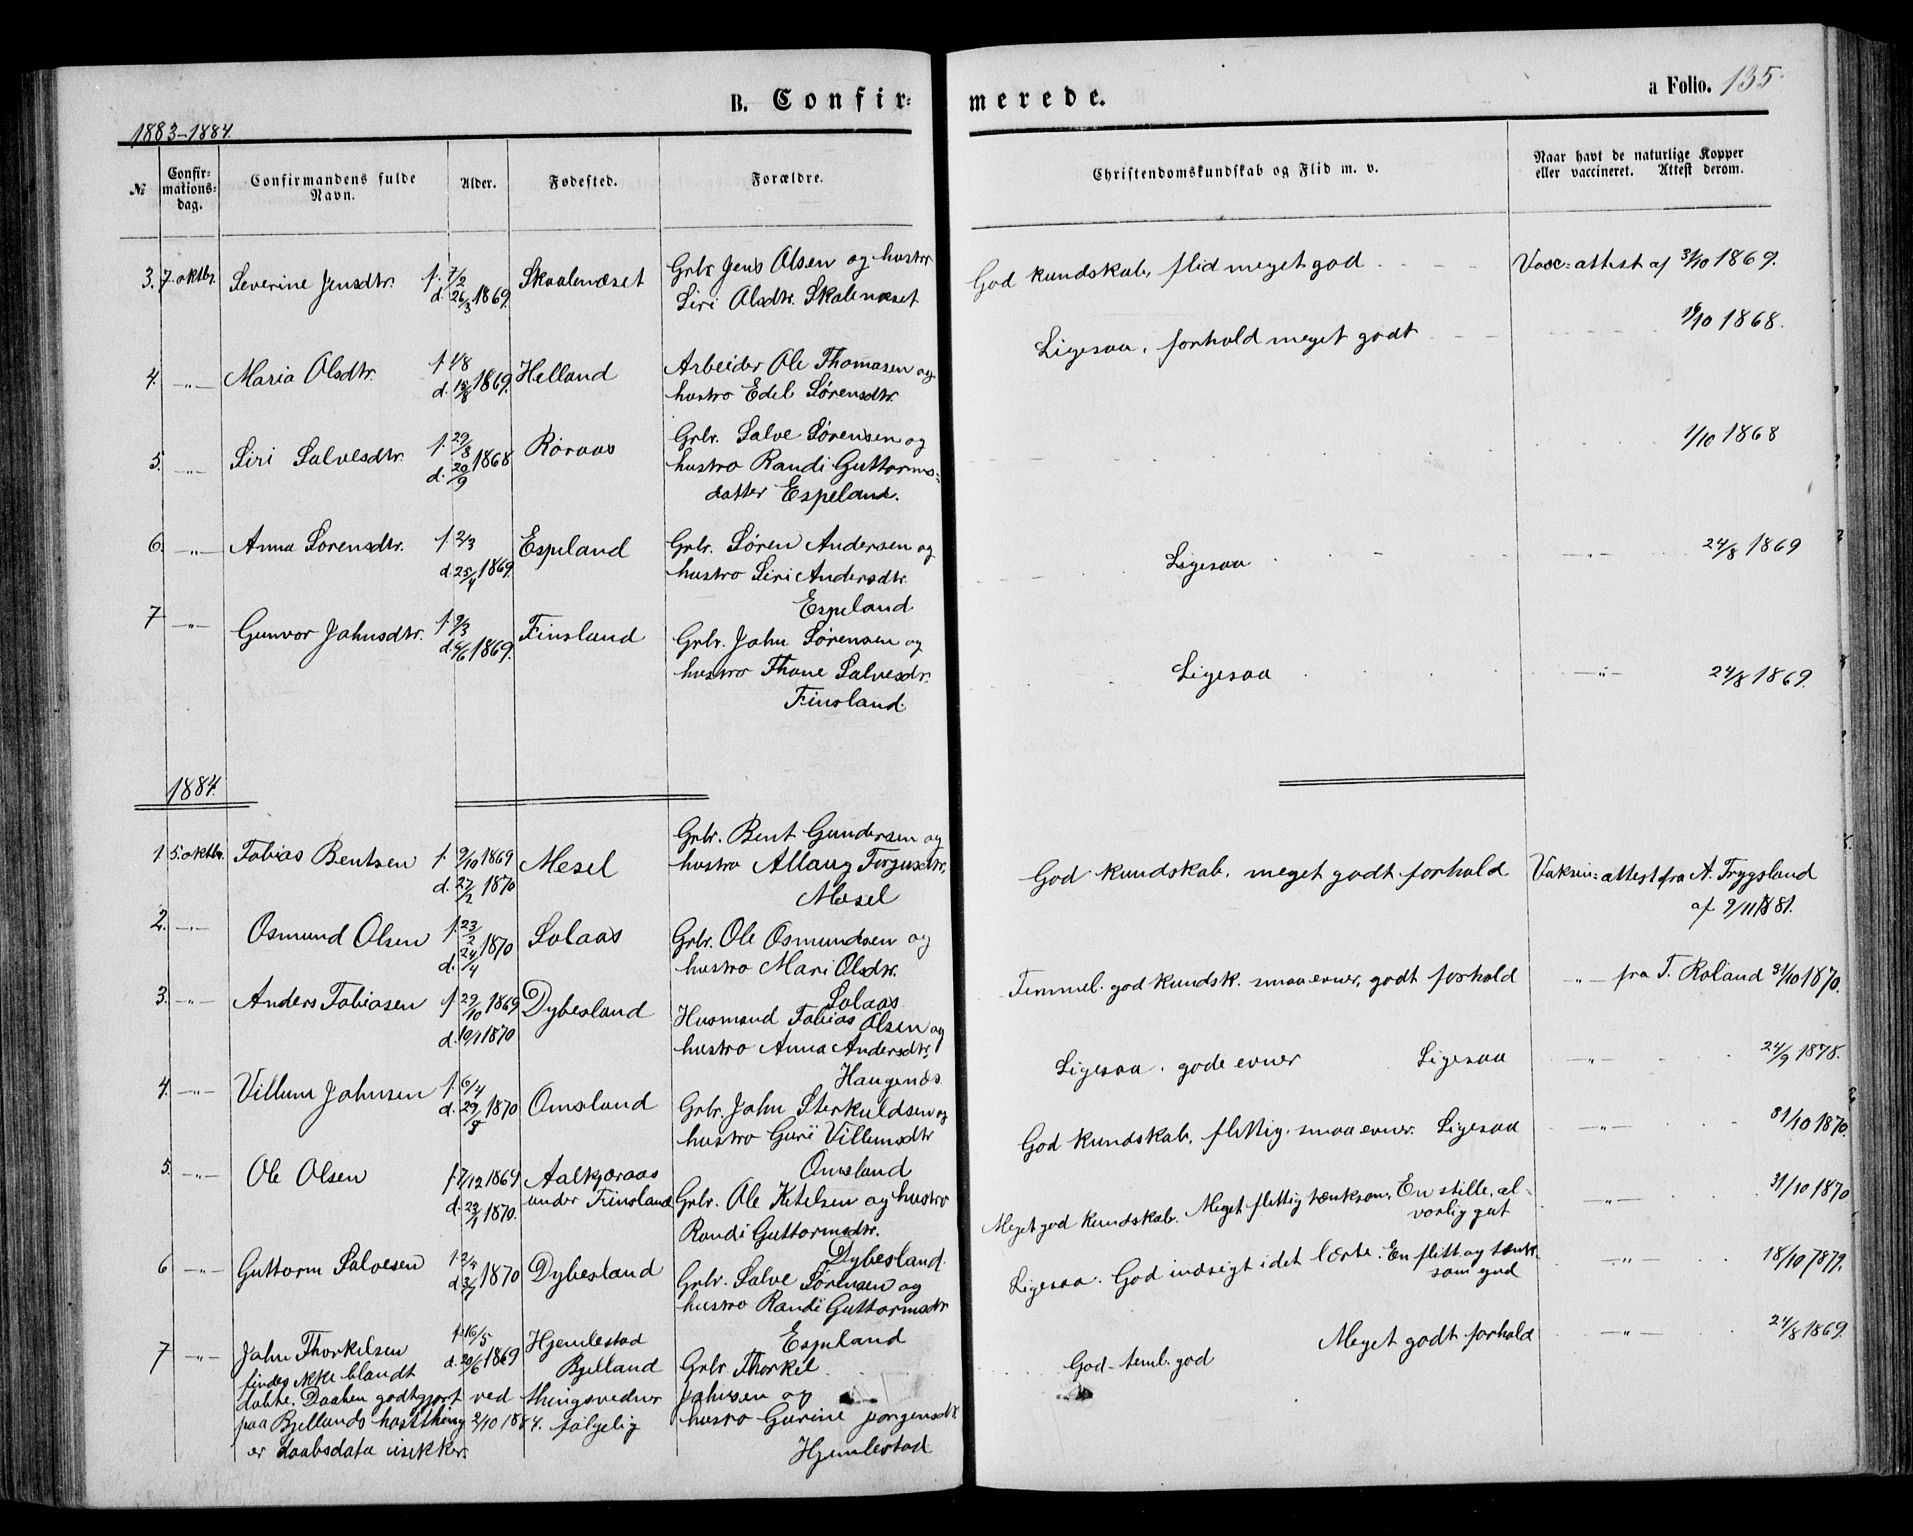 B. Confir=
merede.
a Folio. 135.
1883-1884.
№
Confir-
mations-
dag.
Confirmandens fulde
Navn.
Alder.
Fødested.
Forældre.
Christendomskundskab og Flid m. v.
Naar havt de naturlige Kopper
eller vaccineret. Attest derom.
3. 7. oktbr. Severine Jensdtr. f. 7/2 d. 26/3 1869. Skaalenæset Grbr Jens Olsen og hustro
Siri Olsdtr. Skalenæset
God kundskab, flid meget god Vacc: attest af 31/10 1869.
4. -"- Maria Olsdtr. f. 4/8 d. 15/8 1869. Helland Arbeider Ole Thomasen og
hustro Edel Sørensdtr.
Ligesaa, forhold meget godt 19/10 1868.
5. -"- Siri Salvesdtr. f. 29/8 d. 20/9 1868 Røraas Grbr. Salve Sørensen og
hustro Randi Guttorms=
datter Espeland.
1/10 1868
6. -"- Anna Sørensdtr. f. 2/3 d. 25/4 1869. Espeland Grbr. Søren Andersen og
hustro Siri Andersdtr.
Espeland.
Ligesaa -"- 24/8 1869
7 -"- Gunvor Jahnsdtr. f. 9/3 d. 6/6 1869. Finsland Grbr. Jahn Sørensen og
hustro Thone Salvesdr.
Finsland.
Ligesaa -"- 24/8 1869.
1884.
1 5. oktbr. Tobias Bentsen f. 9/10 1869 d. 27/2 1870 Mesel Grbr. Bent Gundersen og
hustro Allaug Torjusdtr,
Mesel
God kundskab, meget godt forhold Vaksin: attest fra A. Trygsland
af 9/11 1881.
2. -"- Osmund Olsen f. 23/2 d. 24/4 1870 Solaas Grbr. Ole Osmundsen og
hustro Mari Olsdtr.
Solaas
Temmel. god kundsk. smaa evner, godt forhold " fra T. Roland 31/10 1870.
3. -"- Anders Tobiasen f. 29/10 1869 d. 10/1 1870 Dybesland Husmand Tobias Olsen og
hustro Anna Andersdtr.
Haugenes
Ligesaa, gode evner Ligesaa -"- 24/9 1878.
4. -"- Villum Jahnsen f. 6/4 d. 29/5 1870 Omsland Grbr. Jahn Sterkuldsen og
hustro Guri Villumsdtr
Omsland
God kundskab, flittig, smaa evner. Ligesaa -"- 31/10 1870.
5. -"- Ole Olsen f. 7/12 1869 d. 23/1 1870. Aalkjøraas
under Finsland Grbr. Ole Ketelsen og hustro
Randi Guttormsdtr.
Dybesland
Meget god kundskab. Meget flittig tænksom, En stille, al-
vorlig gut
-"- 31/10 1870
6 -"- Guttorm Salvesen f. 2/4 d. 3/7 1870 Dybesland Grbr. Salve Sørensen og
hustro Randi Guttormsdtr
Espeland
Ligesaa. God indsigt i det lærte. En flitt. og tænk-
som gud
-"- 18/10 1879.
7 -"- Jahn Thorkelsen f. 16/5 d. 20/6 1869 Hjemlestad
Bjelland Grbr Thorkel
Jahnsen og
hustro Gurine Jørgensdtr.
Hjemlestad
findes ikke blandt
døbte. Daaben godtgjort ved thingsvedner
paa Bjellands høstthing 2/10 1884. følgelig
er daabsdata usikker.
God-teml. god Meget godt forhold -"- 24/8 1869.